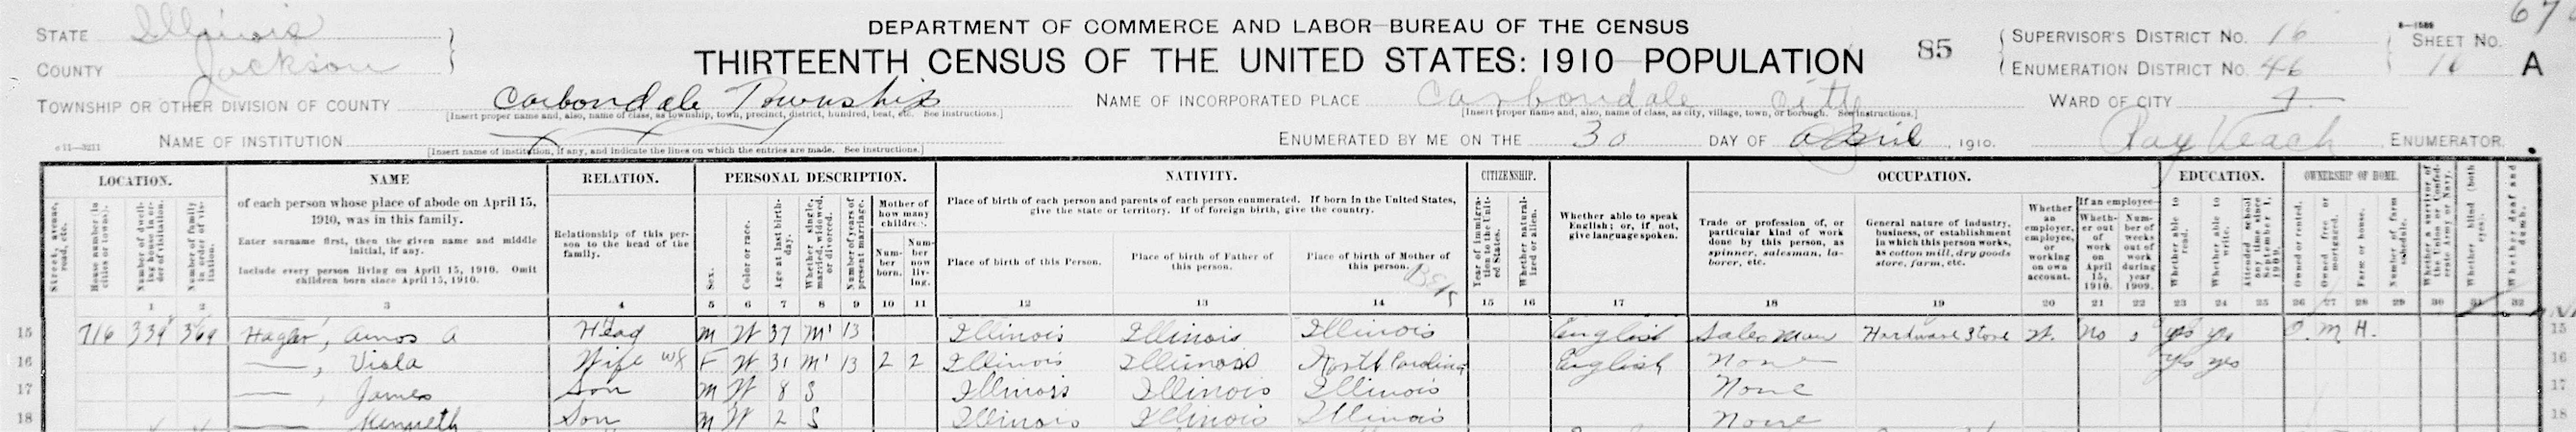 DEPARTMENT OF COMMERCE AND LABOR—BUREAU OF THE CENSUS
THIRTEENTH CENSUS OF THE UNITED STATES: 1910—POPULATION
85
STATE Illinois
COUNTY Jackson
TOWNSHIP OR OTHER DIVISION OF COUNTY Carbondale Township
[Insert proper name and, also, name of class, as township, town, precinct, district, hundred, beat, etc. See instructions.]
NAME OF INSTITUTION
[Insert name of institution, if any, and indicate the lines on which the entries are made. See instructions.]
NAME OF INCORPORATED PLACE Carbondale City
[Insert proper name and, also, name of class, as city, village, town, or borough. See instructions.]
ENUMERATED BY ME ON THE 30 DAY OF April, 1910.
Ray Veach ENUMERATOR.
SUPERVISOR'S DISTRICT No. 16
ENUMERATION DISTRICT No. 46
SHEET No.
16 A
WARD OF CITY
LOCATION.
Street, avenue, road, etc.
House number (in cities or towns).
Number of dwelling house in order of visitation.
Number of family in order of visitation.
NAME
of each person whose place of abode on April 15, 1910, was in this family.
Enter surname first, then the given name and middle initial, if any.
Include every person living on April 15, 1910. Omit children born since April 15, 1910.
RELATION.
Relationship of this person to the head of the family.
PERSONAL DESCRIPTION.
Sex.
Color or race.
Age at last birthday.
Whether single, married, widowed, or divorced.
Number of years of present marriage.
Mother of how many children.
Number born.
Number now living.
NATIVITY.
Place of birth of each person and parents of each person enumerated. If born in the United States, give the state or territory. If of foreign birth, give the country.
Place of birth of this Person.
Place of birth of Father of this person.
Place of birth of Mother of this person.
CITIZENSHIP.
Year of immigration to the United States.
Whether naturalized or alien.
Whether able to speak English; or, if not, give language spoken.
OCCUPATION.
Trade or profession of, or particular kind of work done by this person, as spinner, salesman, laborer, etc.
General nature of industry, business, or establishment in which this person works, as cotton mill, dry goods store, farm, etc.
Whether an employer, employee, or working on own account.
If an employee—
Whether out of work on April 15, 1910.
Number of weeks out of work during year 1909.
EDUCATION.
Whether able to read.
Whether able to write.
Attended school any time since September 1, 1909.
OWNERSHIP OF HOME.
Owned or rented.
Owned free or mortgaged.
Farm or house.
Number of farm schedule.
Whether a survivor of the Union or Confederate Army or Navy.
Whether blind (both eyes).
Whether deaf and dumb.
1 2 3 4 5 6 7 8 9 10 11 12 13 14 15 16 17 18 19 20 21 22 23 24 25 26 27 28 29 30 31 32
15 716 339 369 Hagler, Amos A Head M W 37 M1 13 Illinois Illinois Illinois English Sales Man Hardware Store W. No yes yes O. M H. 15
16 —, Viola Wife F W 31 M1 13 2 2 Illinois Illinois North Carolina English None yes yes 16
17 —, James Son M W 8 S Illinois Illinois Illinois None 17
18 — Kenneth Son M W 2 S Illinois Illinois Illinois None 18